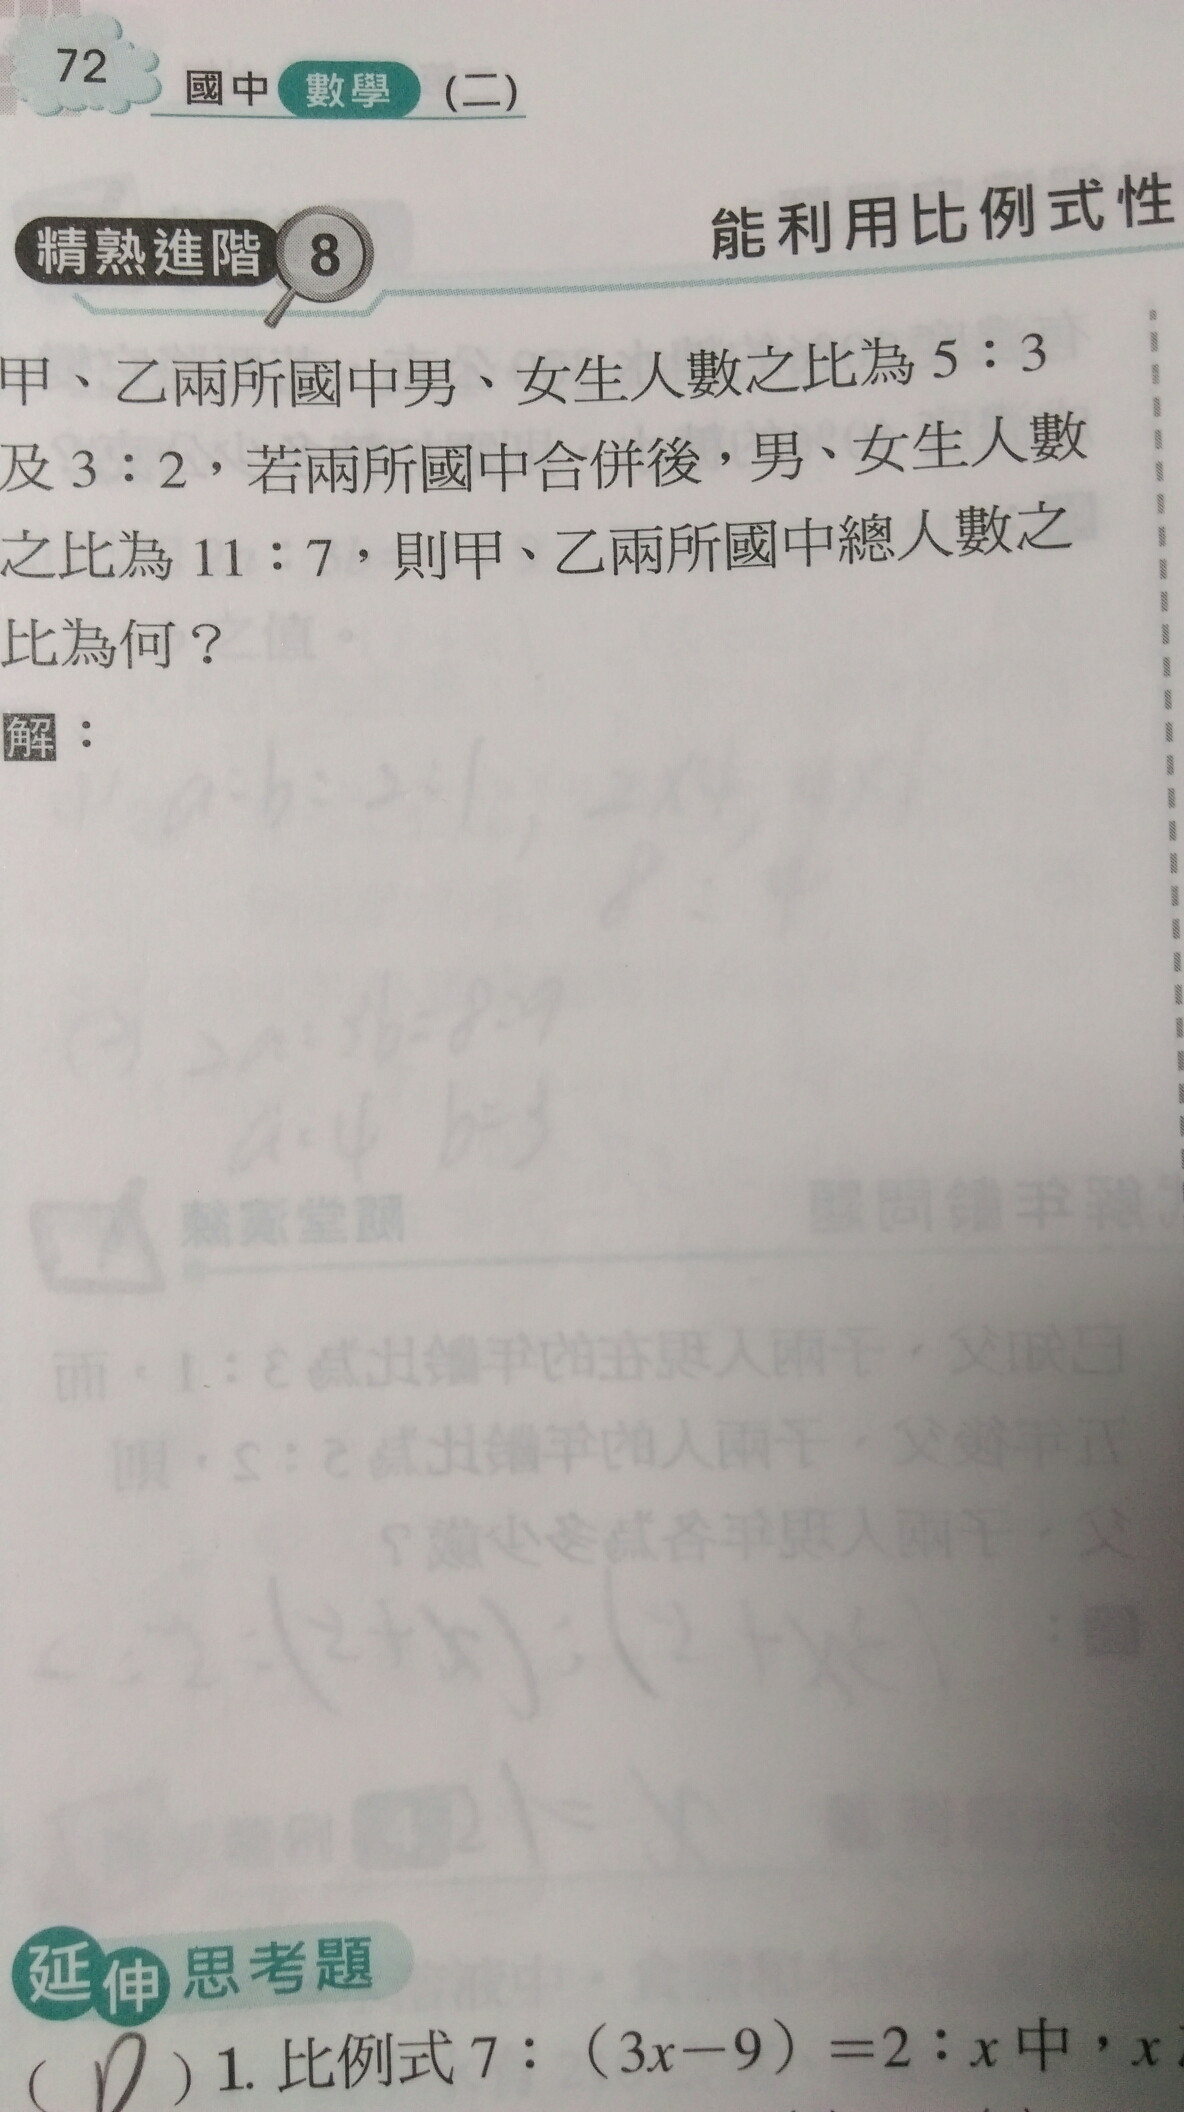 72
國中 數學 (二)
精熟進階 8
能利用比例式性
甲、乙兩所國中男、女生人數之比為 5：3
及 3：2，若兩所國中合併後，男、女生人數
之比為 11：7，則甲、乙兩所國中總人數之
比為何？
解：
延伸思考題
( D ) 1. 比例式 7：（3x－9）＝2：x 中，x